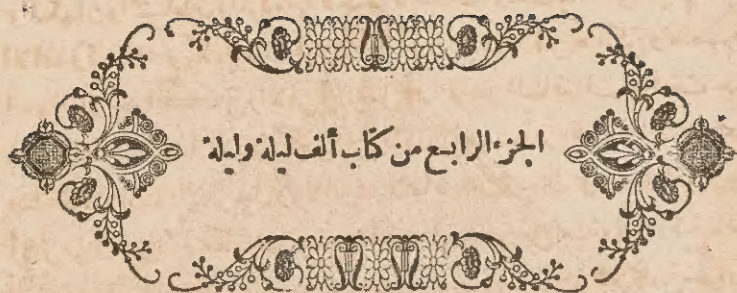 الجزء الرابع من كتاب ألف ليلة وليلة